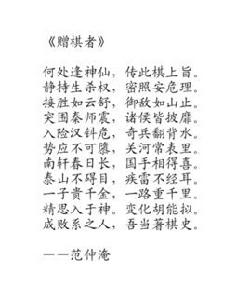 《赠棋者》
何处逢神仙，传此棋上旨。
静持生杀权，密照安危理。
接胜如云舒，御敌如山止。
突围秦师震，诸侯皆披靡。
入险汉钎危，奇兵翻背水。
势应不可隳，关河常表里。
南轩春日长，国手相得喜。
泰山不碍目，疾雷不经耳。
一子贵千金，一路重千里。
精思入于神，变化胡能拟。
成败系之人，吾当著棋史。
——范仲淹